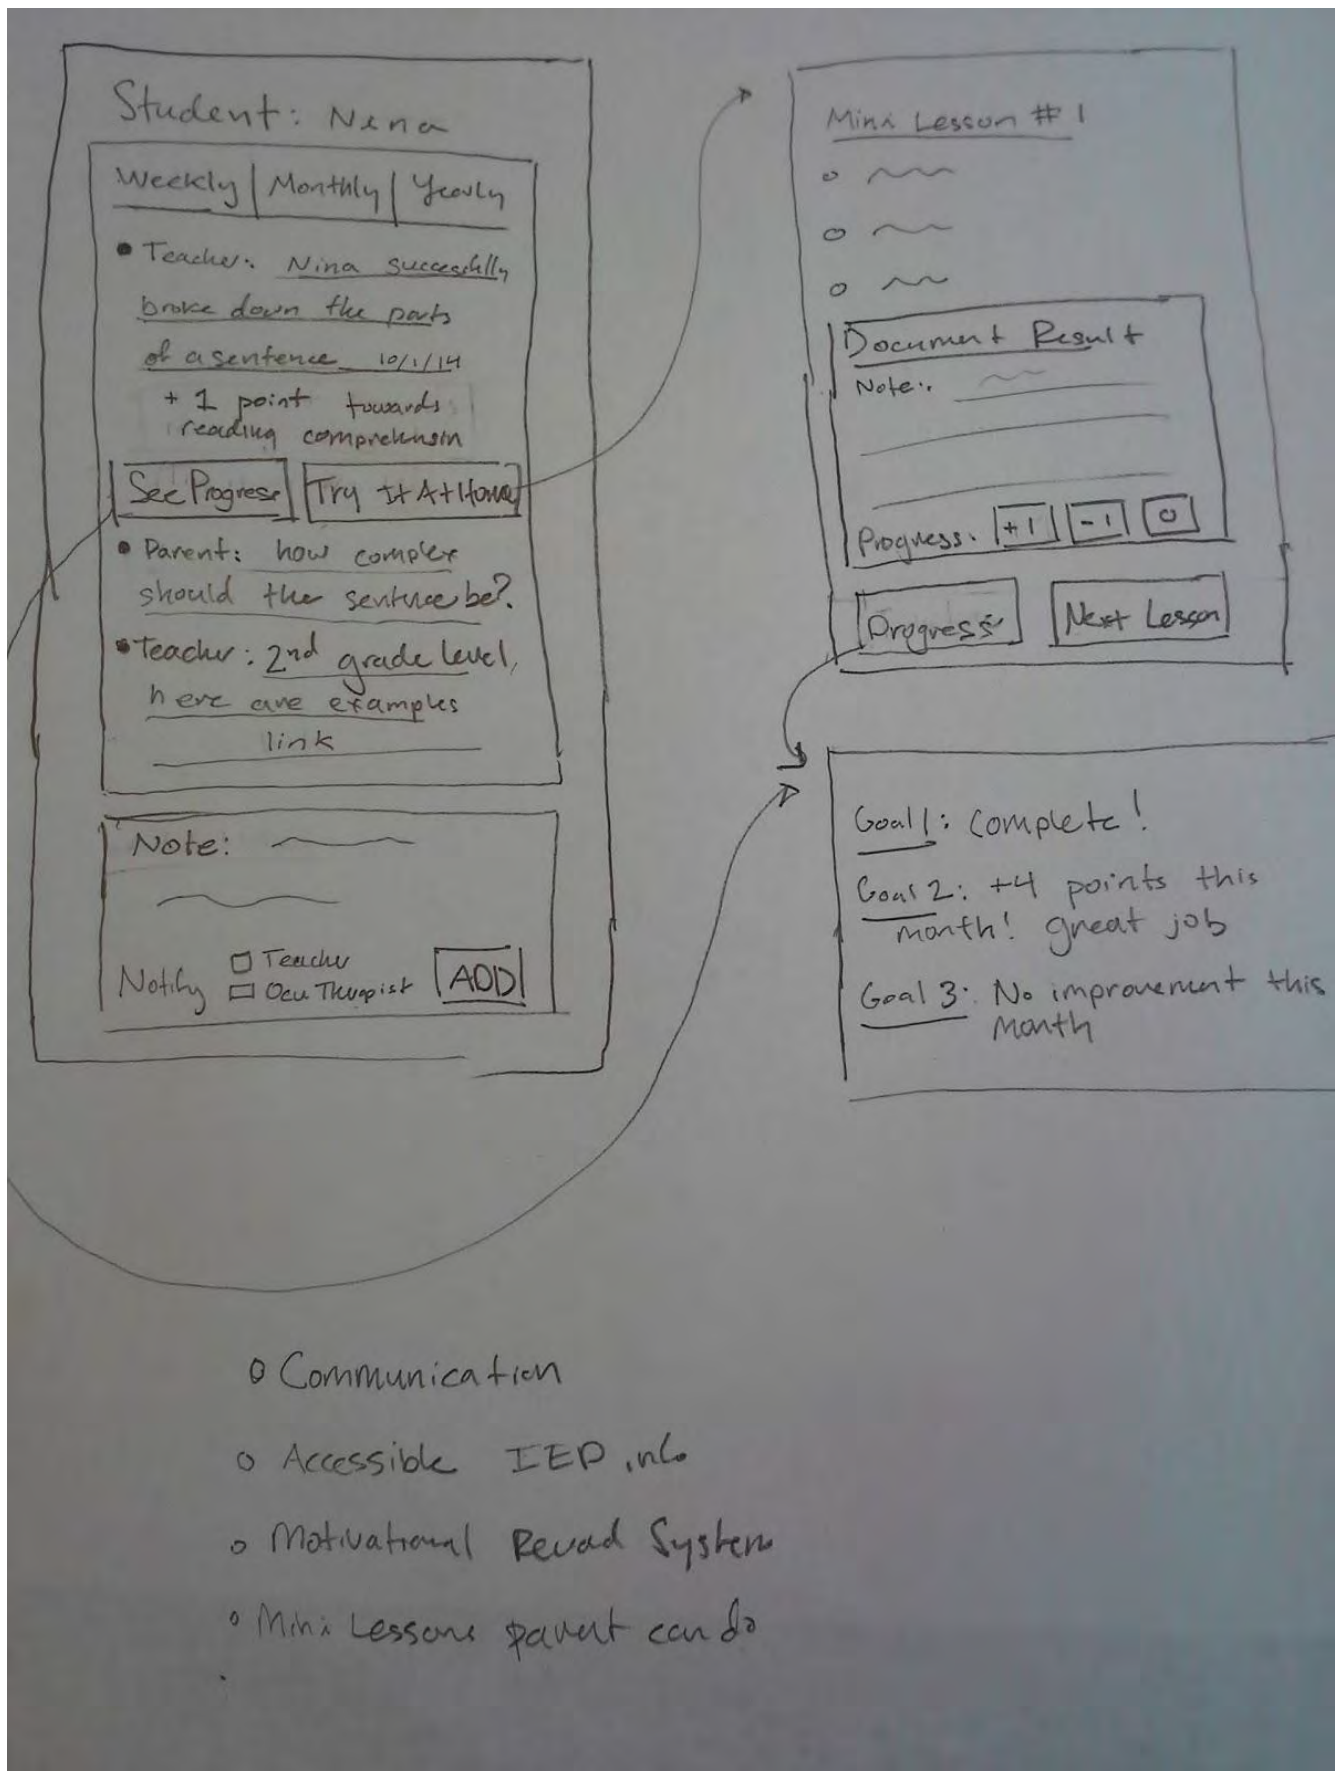 Student: Nina
Weekly | Monthly | Yearly
• Teacher: Nina successfully
broke down the parts
of a sentence 10/1/14
+ 1 point towards
reading comprehension
See Progress
Try It At Home
• Parent: how complex
should the sentence be?
• Teacher: 2nd grade level,
here are examples
link
Note:
Notify
Teacher
Ocu Therapist
ADD
Mini Lesson #1
Document Result
Note:
Progress: +1 -1 0
Progress
Next Lesson
Goal 1: Complete!
Goal 2: +4 points this
month! great job
Goal 3: No improvement this
month
o Communication
o Accessible IEP info
o Motivational Reward System
o Mini Lessons parent can do